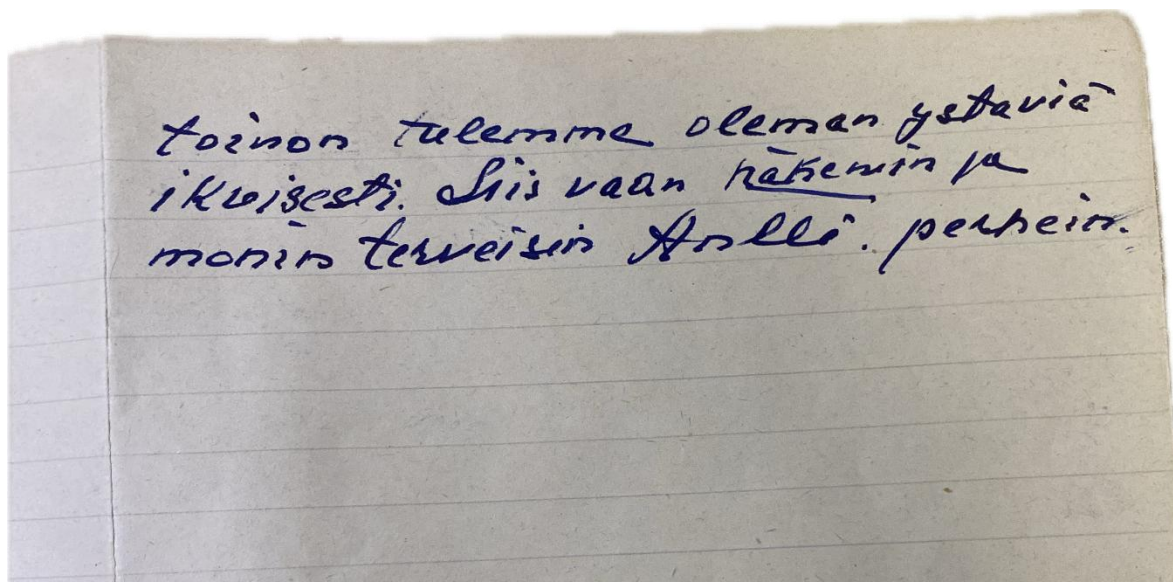 toivon tulemme oleman ystaviä
ikuisesti. Siis vaan näkemin ja
monin terveisin Anlli. perhein.